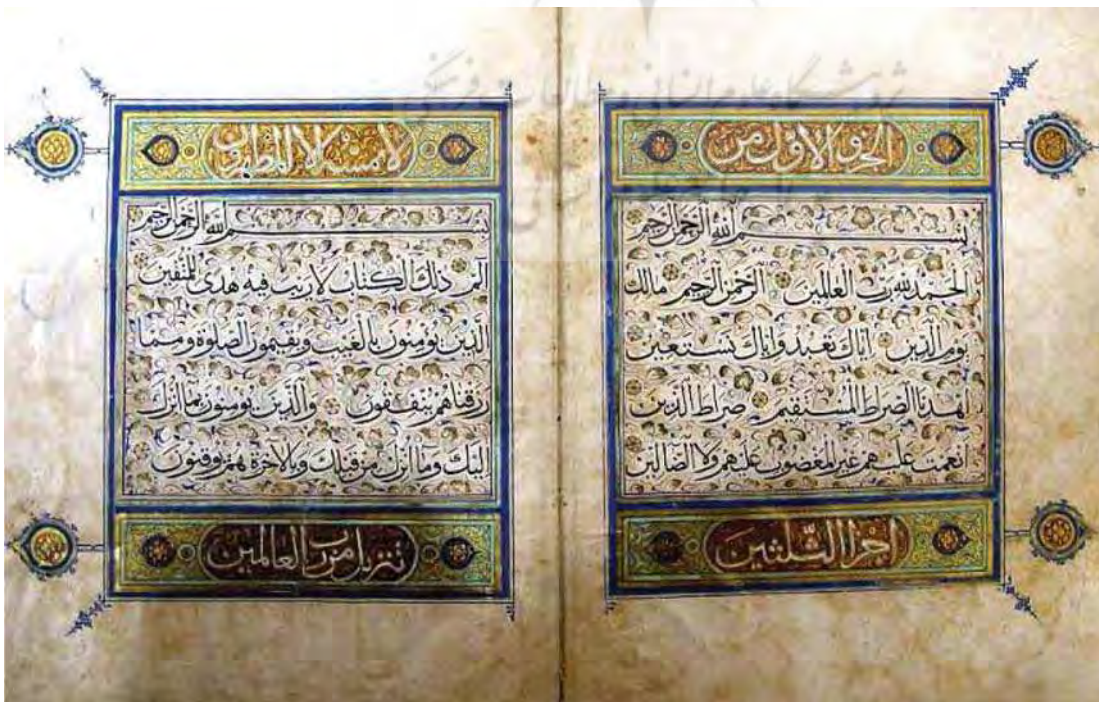 پژوهشگاه علوم انسانی و مطالعات فرهنگی
الجزء الاول من
بسم الله الرحمن الرحيم
الحمد لله رب العالمين الرحمن الرحيم مالك
يوم الدين اياك نعبد واياك نستعين
اهدنا الصراط المستقيم صراط الذين
انعمت عليهم غير المغضوب عليهم ولا الضالين
اجزا الثلثين
لا يمسه الا المطهرون
بسم الله الرحمن الرحيم
الم ذلك الكتاب لا ريب فيه هدى للمتقين
الذين يؤمنون بالغيب ويقيمون الصلوة ومما
رزقناهم ينفقون والذين يؤمنون بما انزل
اليك وما انزل من قبلك وبالآخرة هم يوقنون
تنزيل من رب العالمين